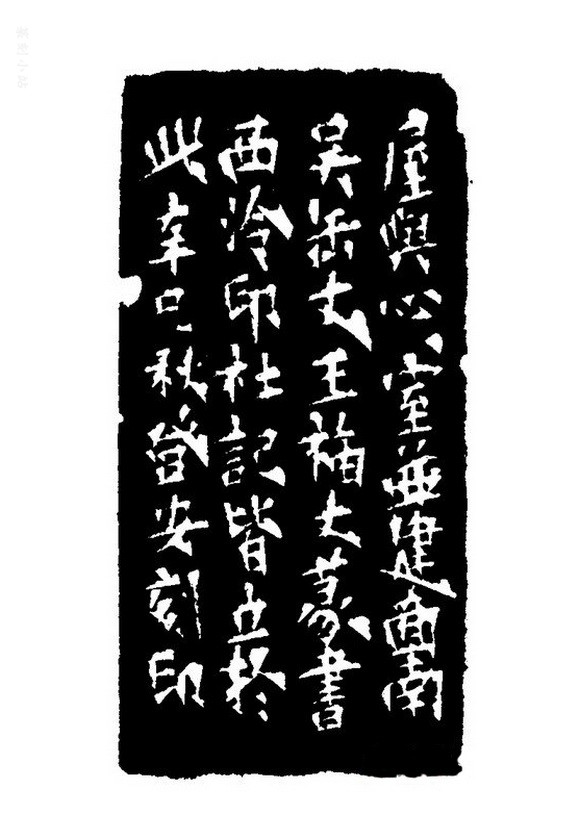 屋與心室並建面南
吳缶丈王福丈篆書
西泠印社記皆立於
此辛巳秋登安刻印